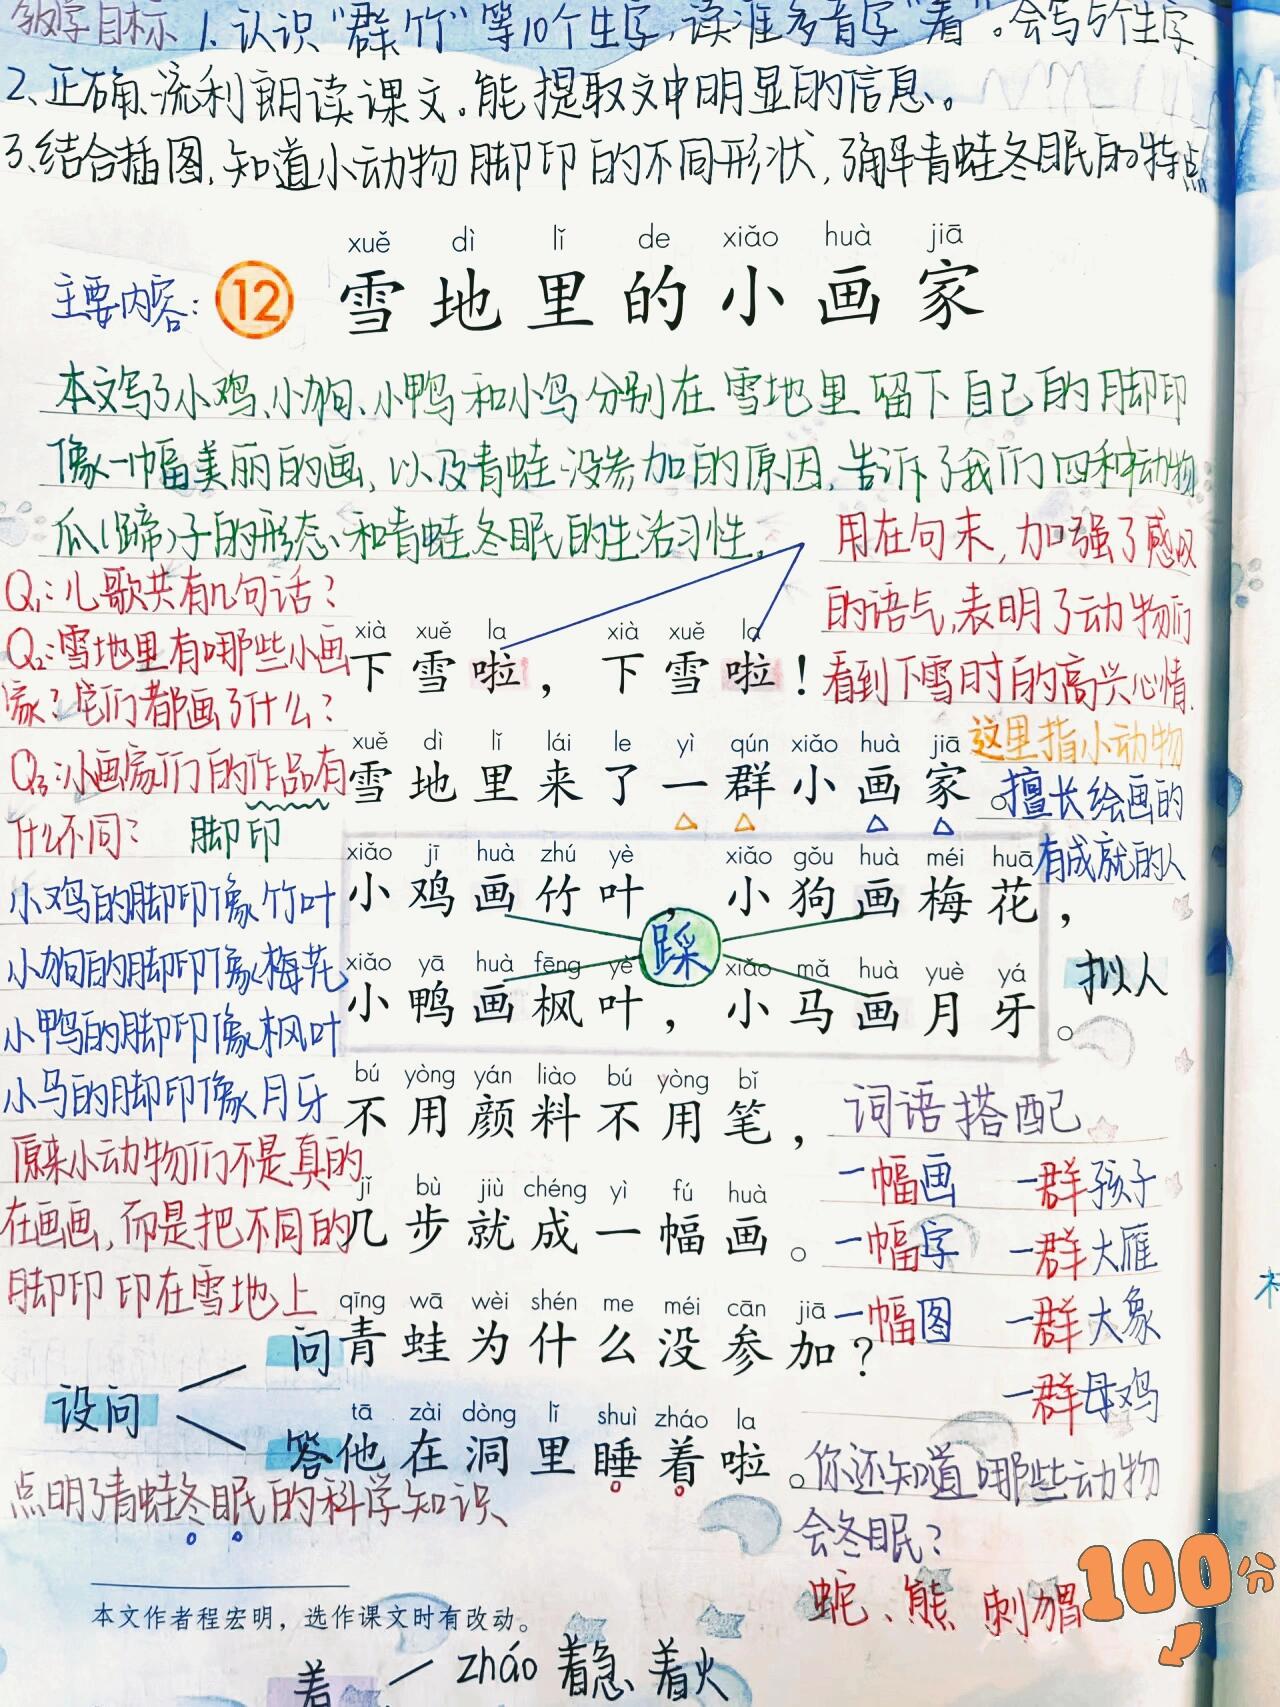 教学目标 1.认识“群、竹”等10个生字,读准多音字“着”。会写5个生字
2、正确、流利朗读课文。能提取文中明显的信息。
3.结合插图,知道小动物脚印的不同形状,了解青蛙冬眠的特点
xuě dì lǐ de xiǎo huà jiā
主要内容: 12 雪地里的小画家
本文写了小鸡、小狗、小鸭和小鸟分别在雪地里留下自己的脚印
像一幅美丽的画,以及青蛙没参加的原因,告诉了我们四种动物
爪(蹄)子的形态和青蛙冬眠的生活习性。
用在句末,加强了感叹
的语气,表明了动物们
看到下雪时的高兴心情.
Q1:儿歌共有几句话?
Q2:雪地里有哪些小画
家?它们都画了什么?
Q3:小画家们的作品有
什么不同? 脚印
xià xuě la xià xuě la
下雪啦,下雪啦!
xuě dì lǐ lái le yì qún xiǎo huà jiā
雪地里来了一群小画家。
这里指小动物
擅长绘画的
有成就的人
xiǎo jī huà zhú yè xiǎo gǒu huà méi huā
小鸡画竹叶,小狗画梅花,
踩
xiǎo yā huà fēng yè xiǎo mǎ huà yuè yá
小鸭画枫叶,小马画月牙。
拟人
小鸡的脚印像竹叶
小狗的脚印像梅花
小鸭的脚印像枫叶
小马的脚印像月牙
原来小动物们不是真的
在画画,而是把不同的
脚印印在雪地上
bú yòng yán liào bú yòng bǐ
不用颜料不用笔,
jǐ bù jiù chéng yì fú huà
几步就成一幅画。
词语搭配
一幅画 一群孩子
一幅字 一群大雁
一幅图 一群大象
一群母鸡
qīng wā wèi shén me méi cān jiā
问 青蛙为什么没参加?
设问
tā zài dòng lǐ shuì zháo la
答 他在洞里睡着啦。
点明了青蛙冬眠的科学知识
你还知道哪些动物
会冬眠?
蛇、熊 刺猬
100分
本文作者程宏明,选作课文时有改动。
着 zháo 着急 着火